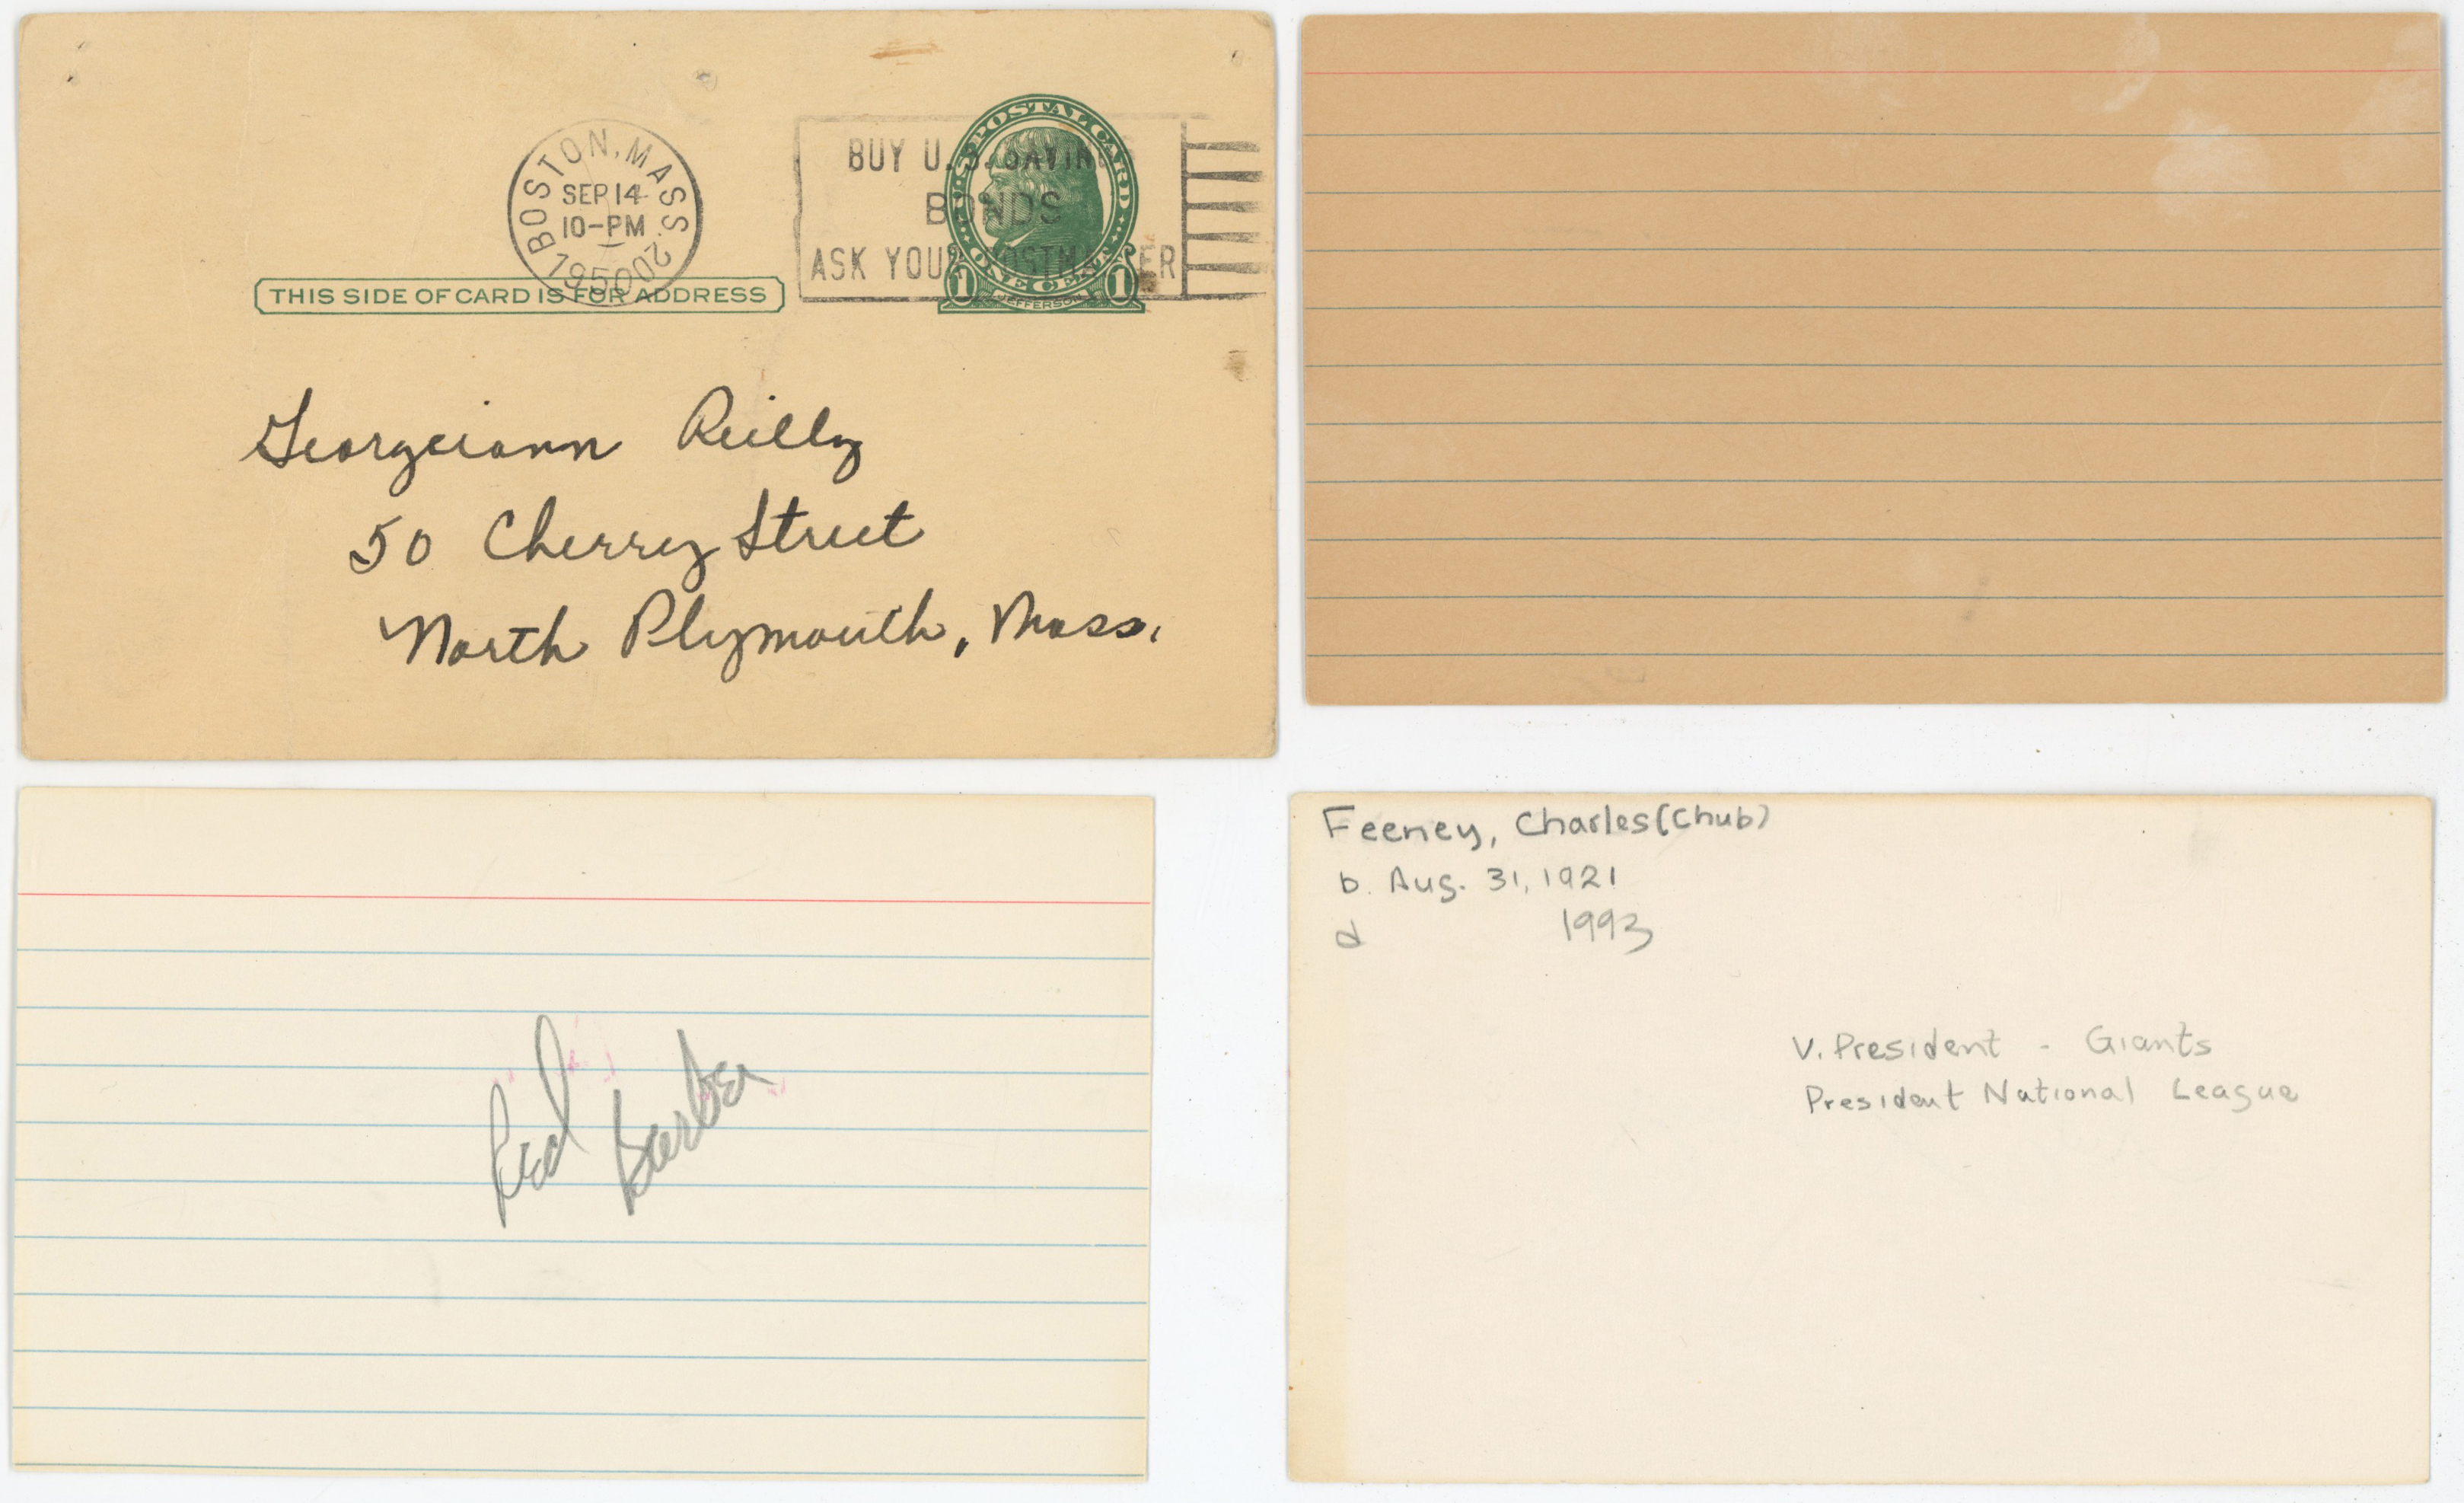 BOSTON, MASS. 2
SEP 14
10-PM
1950
BUY U.S. SAVINGS
BONDS
ASK YOUR POSTMASTER
U.S. POSTAL CARD
ONE CENT
1 JEFFERSON 1
THIS SIDE OF CARD IS FOR ADDRESS
Georgeiann Reilly
50 Cherry Street
North Plymouth, Mass.
Red Barber
Feeney, Charles (Chub)
b. Aug. 31, 1921
d 1993
V. President - Giants
President National League